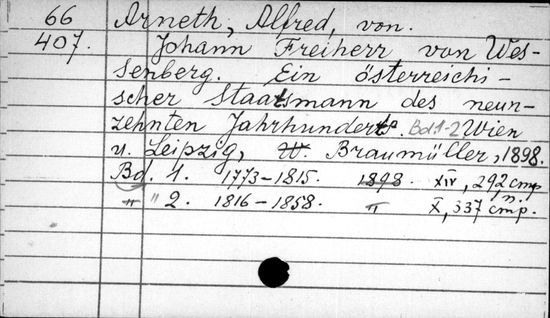 66 Arneth, Alfred, von.
407. Johann Freiherr von Wes-
senberg. Ein österreichi-
scher Staatsmann des neun-
zehnten Jahrhunderts. Bd 1-2 Wien
u. Leipzig, W. Braumüller, 1898.
Bd. 1. 1773-1815. 1898. XIV, 292, стр
" " 2. 1816-1858. " X, 337 стр.